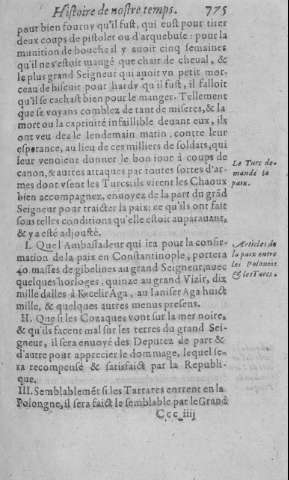 Histoire de nostre temps. 775
pour bien fourny qu'il fust, qui eust pour tirer
deux coups de pistolet ou d'arquebuse: pour la
munition de bouche il y auoit cinq semaines
qu'il ne s'estoit mangé que chair de cheual, &
le plus grand Seigneur qui auoit vn petit mor-
ceau de biscuit pour hardy qu'il fust, il falloit
qu'il se cachast bien pour le manger. Tellement
que se voyans comblez de tant de miseres, & la
mort ou la captiuité infaillible deuant eux, ils
ont veu dez le lendemain matin, contre leur
esperance, au lieu de ces milliers de soldats, qui
leur venoient donner le bon iour à coups de
canon, & autres attaques par toutes sortes d'ar-
mes dont vsent les Turcs, ils virent les Chaoux
bien accompagnez, enuoyez de la part du grãd
Seigneur pour traicter la paix: ce qu'ils ont fait
sous telles conditions qu'elle estoit auparauant,
& y a esté adjousté.
Le Turc de-
mande la
paix.
I. Que l'Ambassadeur qui ira pour la confir-
mation de la paix en Constantinople, portera
40. masses de gibelines au grand Seigneur, auec
quelques horloges, quinze au grand Vizir, dix
mille dalles à Kocelir Aga, au Ianiser Aga huict
mille, & quelques autres menus presens.
Articles de
la paix entre
les Polonois
& les Turcs.
II. Que si les Cozaques vont sur la mer noire,
& qu'ils facent mal sur les terres du grand Sei-
gneur, il sera enuoyé des Deputez de part &
d'autre pour apprecier le dommage, lequel se-
ra recompensé & satisfaict par la Republi-
que.
III. Semblablemẽt si les Tartares entrent en la
Polongne, il sera faict le semblable par le Grand
Ccc iiij